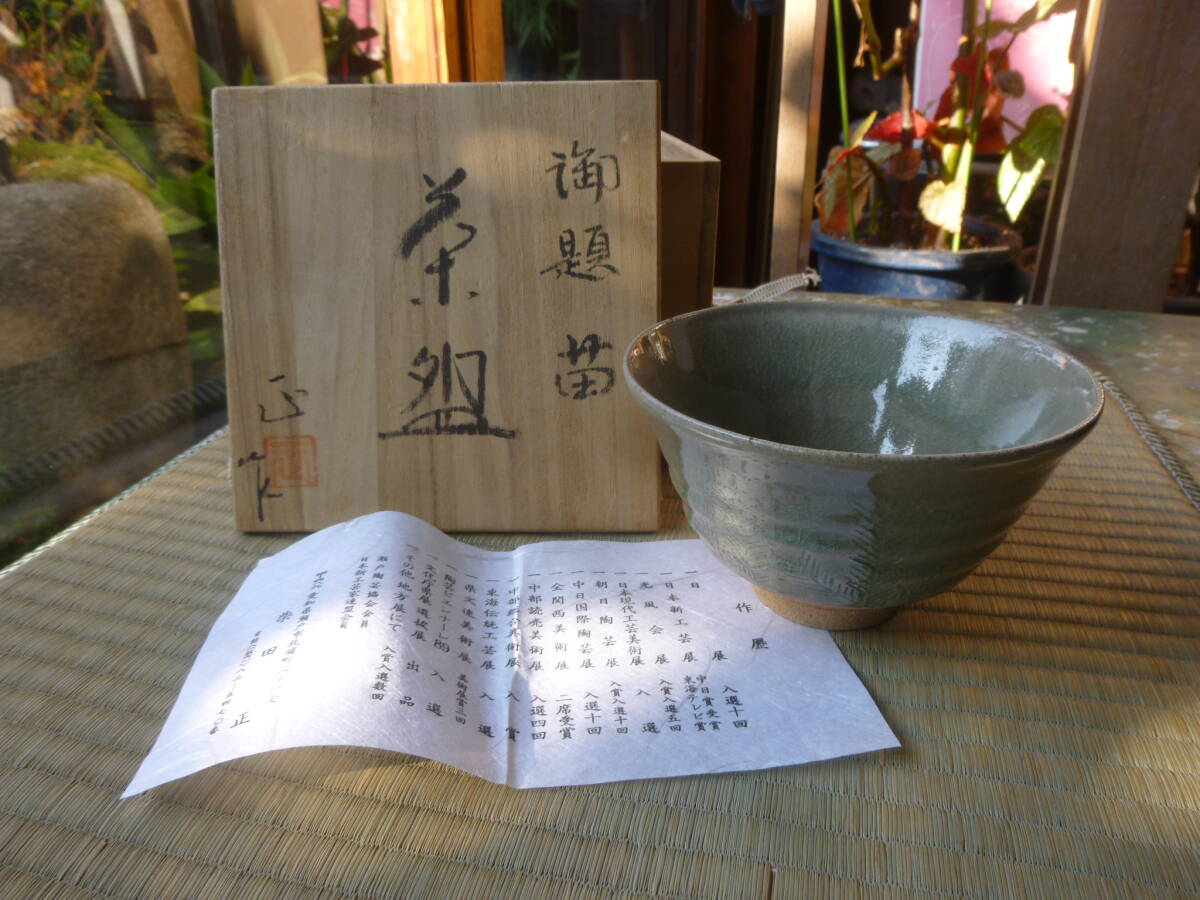 御題 苗
茶盌
正作
作歴
一日展 入選十回
一日本新工芸展 中日賞受賞 東海テレビ賞
一光風会展 入賞入選五回
一日本現代工芸美術展 入選
一朝日陶芸展 入賞入選十回
一中日国際陶芸展 入選十回
一全関西美術展 二席受賞
一中部読売美術展 入選四回
一中部総合美術展 入賞
一東海伝統工芸展 入選
一県文連美術展 美術展賞三回
一陶芸ビエンナーレ89 入選
一文化庁県展選抜展 出品
一その他地方展にて 入賞入選数回
瀬戸陶芸協会会員
日本新工芸家連盟会員
愛知県瀬戸市北浦町
柴田 正